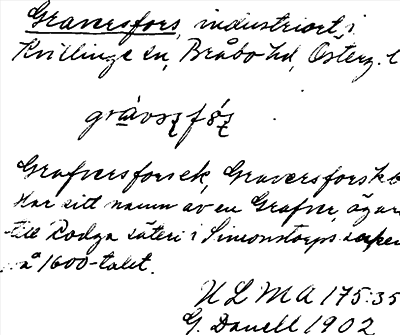 Graversfors, industriort i
Kvillinge sn, Bråbo hd, Österg. l
Grafversforsek, Graversforsk
Har sitt namn av en Grafver, ägare
till Rodga säteri i Simonstorps
på 1600-talet.
ULMA 175:35
G. Danell 1902